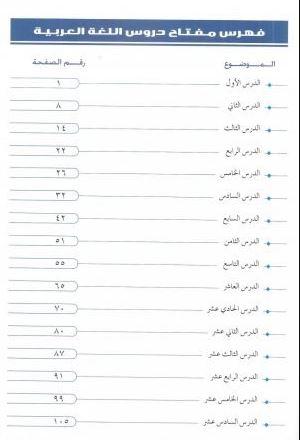 فهرس مفتاح دروس اللغة العربية
الموضوع رقم الصفحة
الدرس الأول ١
الدرس الثاني ٨
الدرس الثالث ١٤
الدرس الرابع ٢٢
الدرس الخامس ٢٦
الدرس السادس ٣٢
الدرس السابع ٤٢
الدرس الثامن ٥١
الدرس التاسع ٥٥
الدرس العاشر ٦٥
الدرس الحادي عشر ٧٠
الدرس الثاني عشر ٨٠
الدرس الثالث عشر ٨٧
الدرس الرابع عشر ٩١
الدرس الخامس عشر ٩٩
الدرس السادس عشر ١٠٥